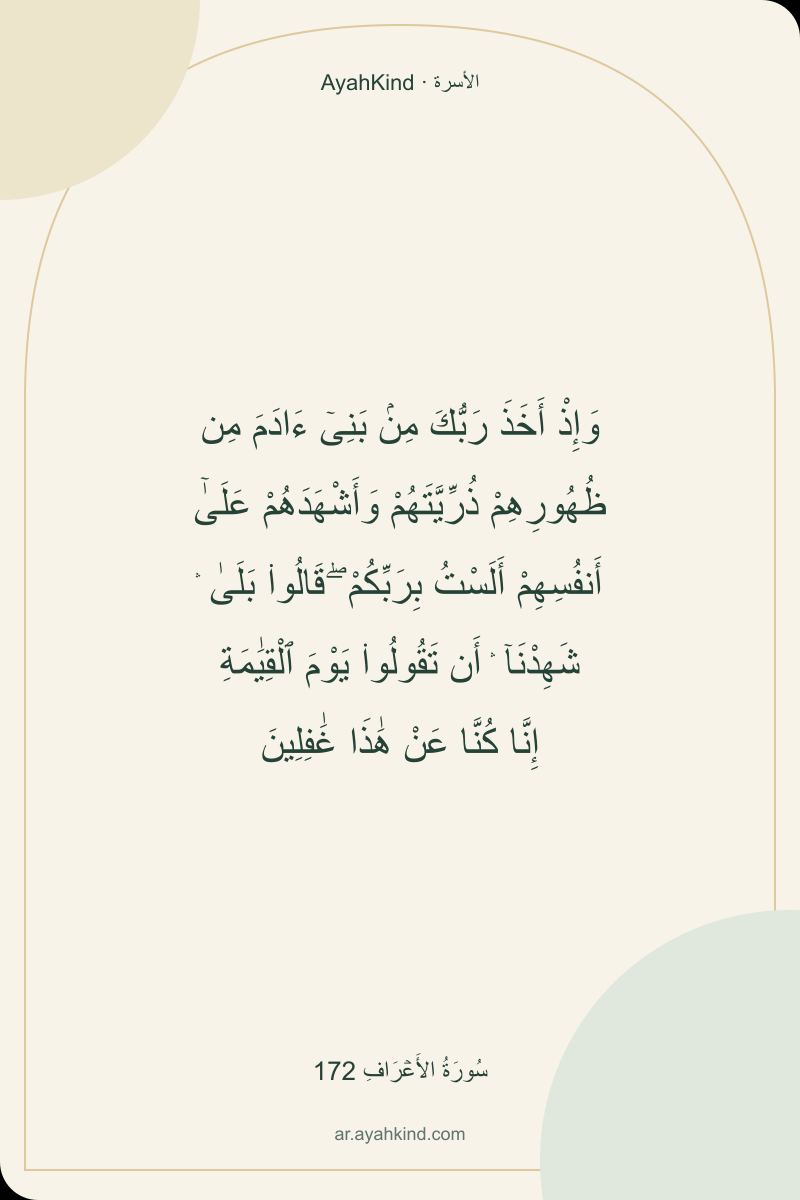 AyahKind · الأسرة
وَإِذْ أَخَذَ رَبُّكَ مِنۢ بَنِىٓ ءَادَمَ مِن
ظُهُورِهِمْ ذُرِّيَّتَهُمْ وَأَشْهَدَهُمْ عَلَىٰٓ
أَنفُسِهِمْ أَلَسْتُ بِرَبِّكُمْ ۖ قَالُوا۟ بَلَىٰ ۛ
شَهِدْنَآ ۛ أَن تَقُولُوا۟ يَوْمَ ٱلْقِيَٰمَةِ
إِنَّا كُنَّا عَنْ هَٰذَا غَٰفِلِينَ
سُورَةُ الأَعۡرَافِ 172
ar.ayahkind.com